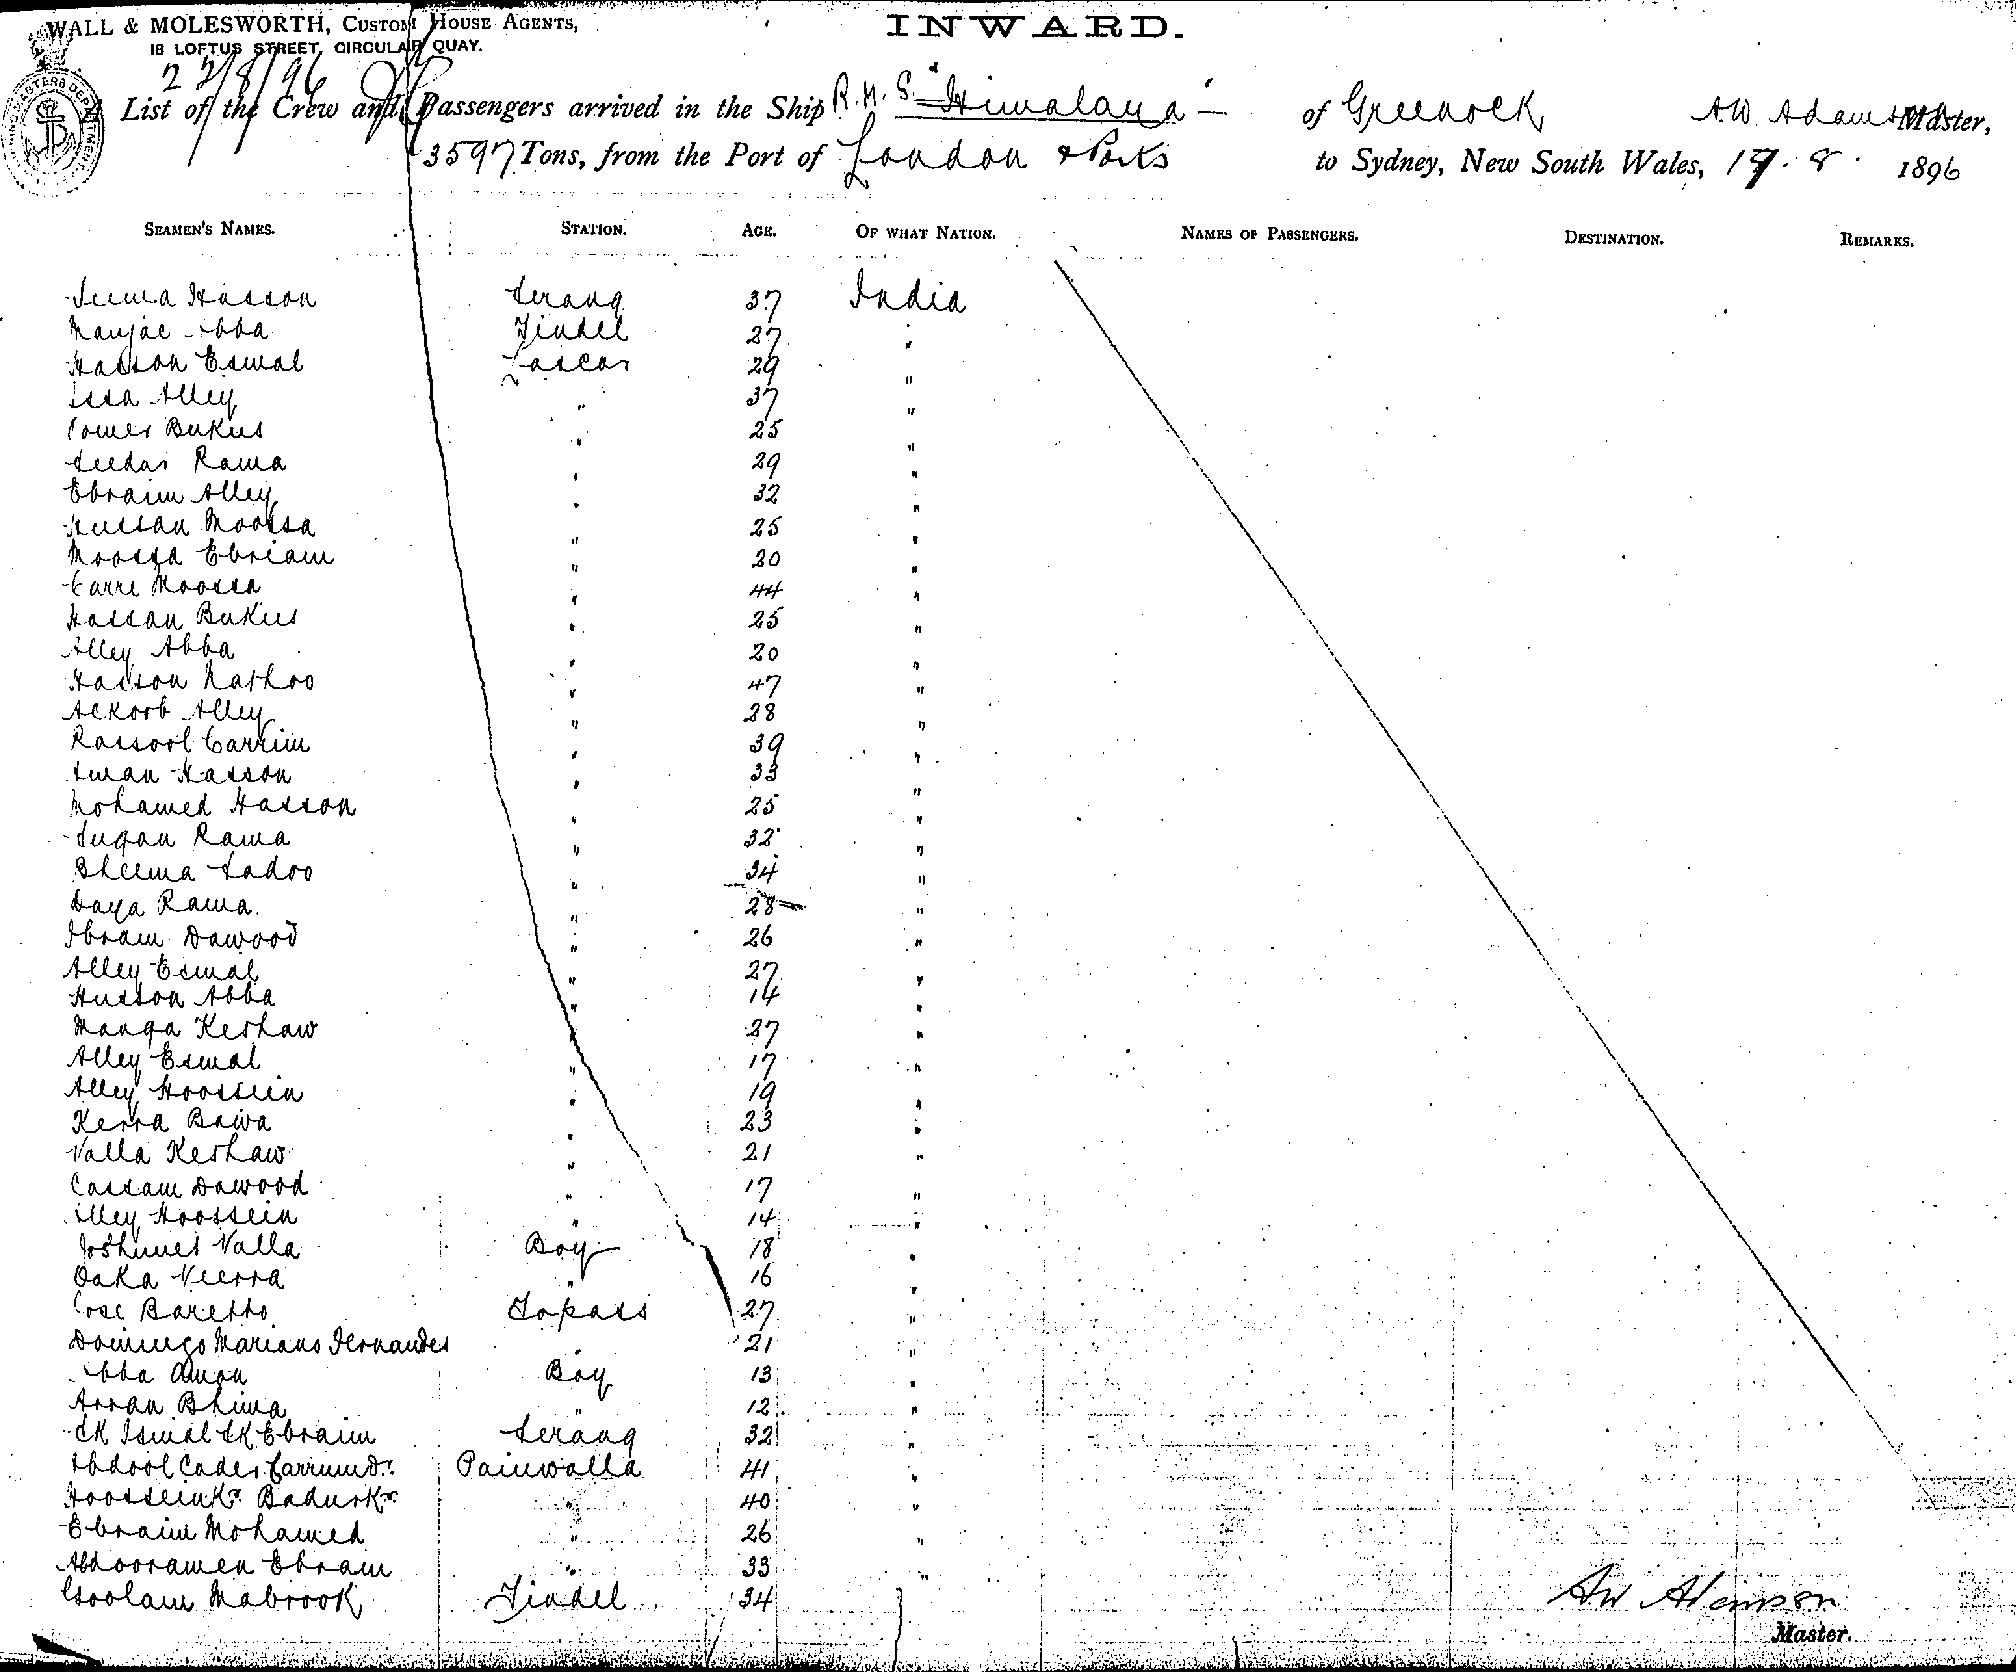 WALL & MOLESWORTH, CUSTOM HOUSE AGENTS,
18 LOFTUS STREET, CIRCULAR QUAY.
INWARD.
22/8/96
List of the Crew and Passengers arrived in the Ship R.M.S. "Himalaya" of Greenock A.W. Adamson Master,
3597 Tons, from the Port of London & Ports to Sydney, New South Wales, 19.8. 1896
SEAMEN'S NAMES. STATION. AGE. OF WHAT NATION. NAMES OF PASSENGERS. DESTINATION. REMARKS.
Hasson Serang 37 India
Abba Tindel 27 "
Hasson Esmal Lascar 29 "
Issa Alley " 37 "
Bukus " 25 "
Rama " 29 "
Ebraim Alley " 32 "
Hussan Moossa " 25 "
Moossa Ebriam " 20 "
Carre Moossa " 44 "
Hassan Bukus " 25 "
Alley Abba " 20 "
Hasson Nathoo " 47 "
Ackoob Alley " 28 "
Rassool Carrim " 39 "
Hasson " 33 "
Mohamed Hasson " 25 "
Rama " 32 "
Bheema Ladoo " 34 "
Daya Rama " 28 "
Ibram Dawood " 26 "
Alley Esmal " 27 "
Husson Abba " 14 "
Manga Keshaw " 27 "
Alley Esmal " 17 "
Alley Hoossein " 19 "
Kerra Bawa " 23 "
Valla Keshaw " 21 "
Cassam Dawood " 17 "
Alley Hoossein " 14 "
Valla Boy 18 "
Veerra " 16 "
Jose Baretto Topass 27 "
Domingo Mariano Fernandes 21 "
Abba Amon Boy 13 "
Arran Bhima " 12 "
SK Ismal SK Ebraim Serang 32 "
Abdool Cader 41 "
40 "
Ebraim Mohamed " 26 "
Abdooramen Ebram " 33 "
Goolam Mabrook Tindel 34
AW Adamson
Master.